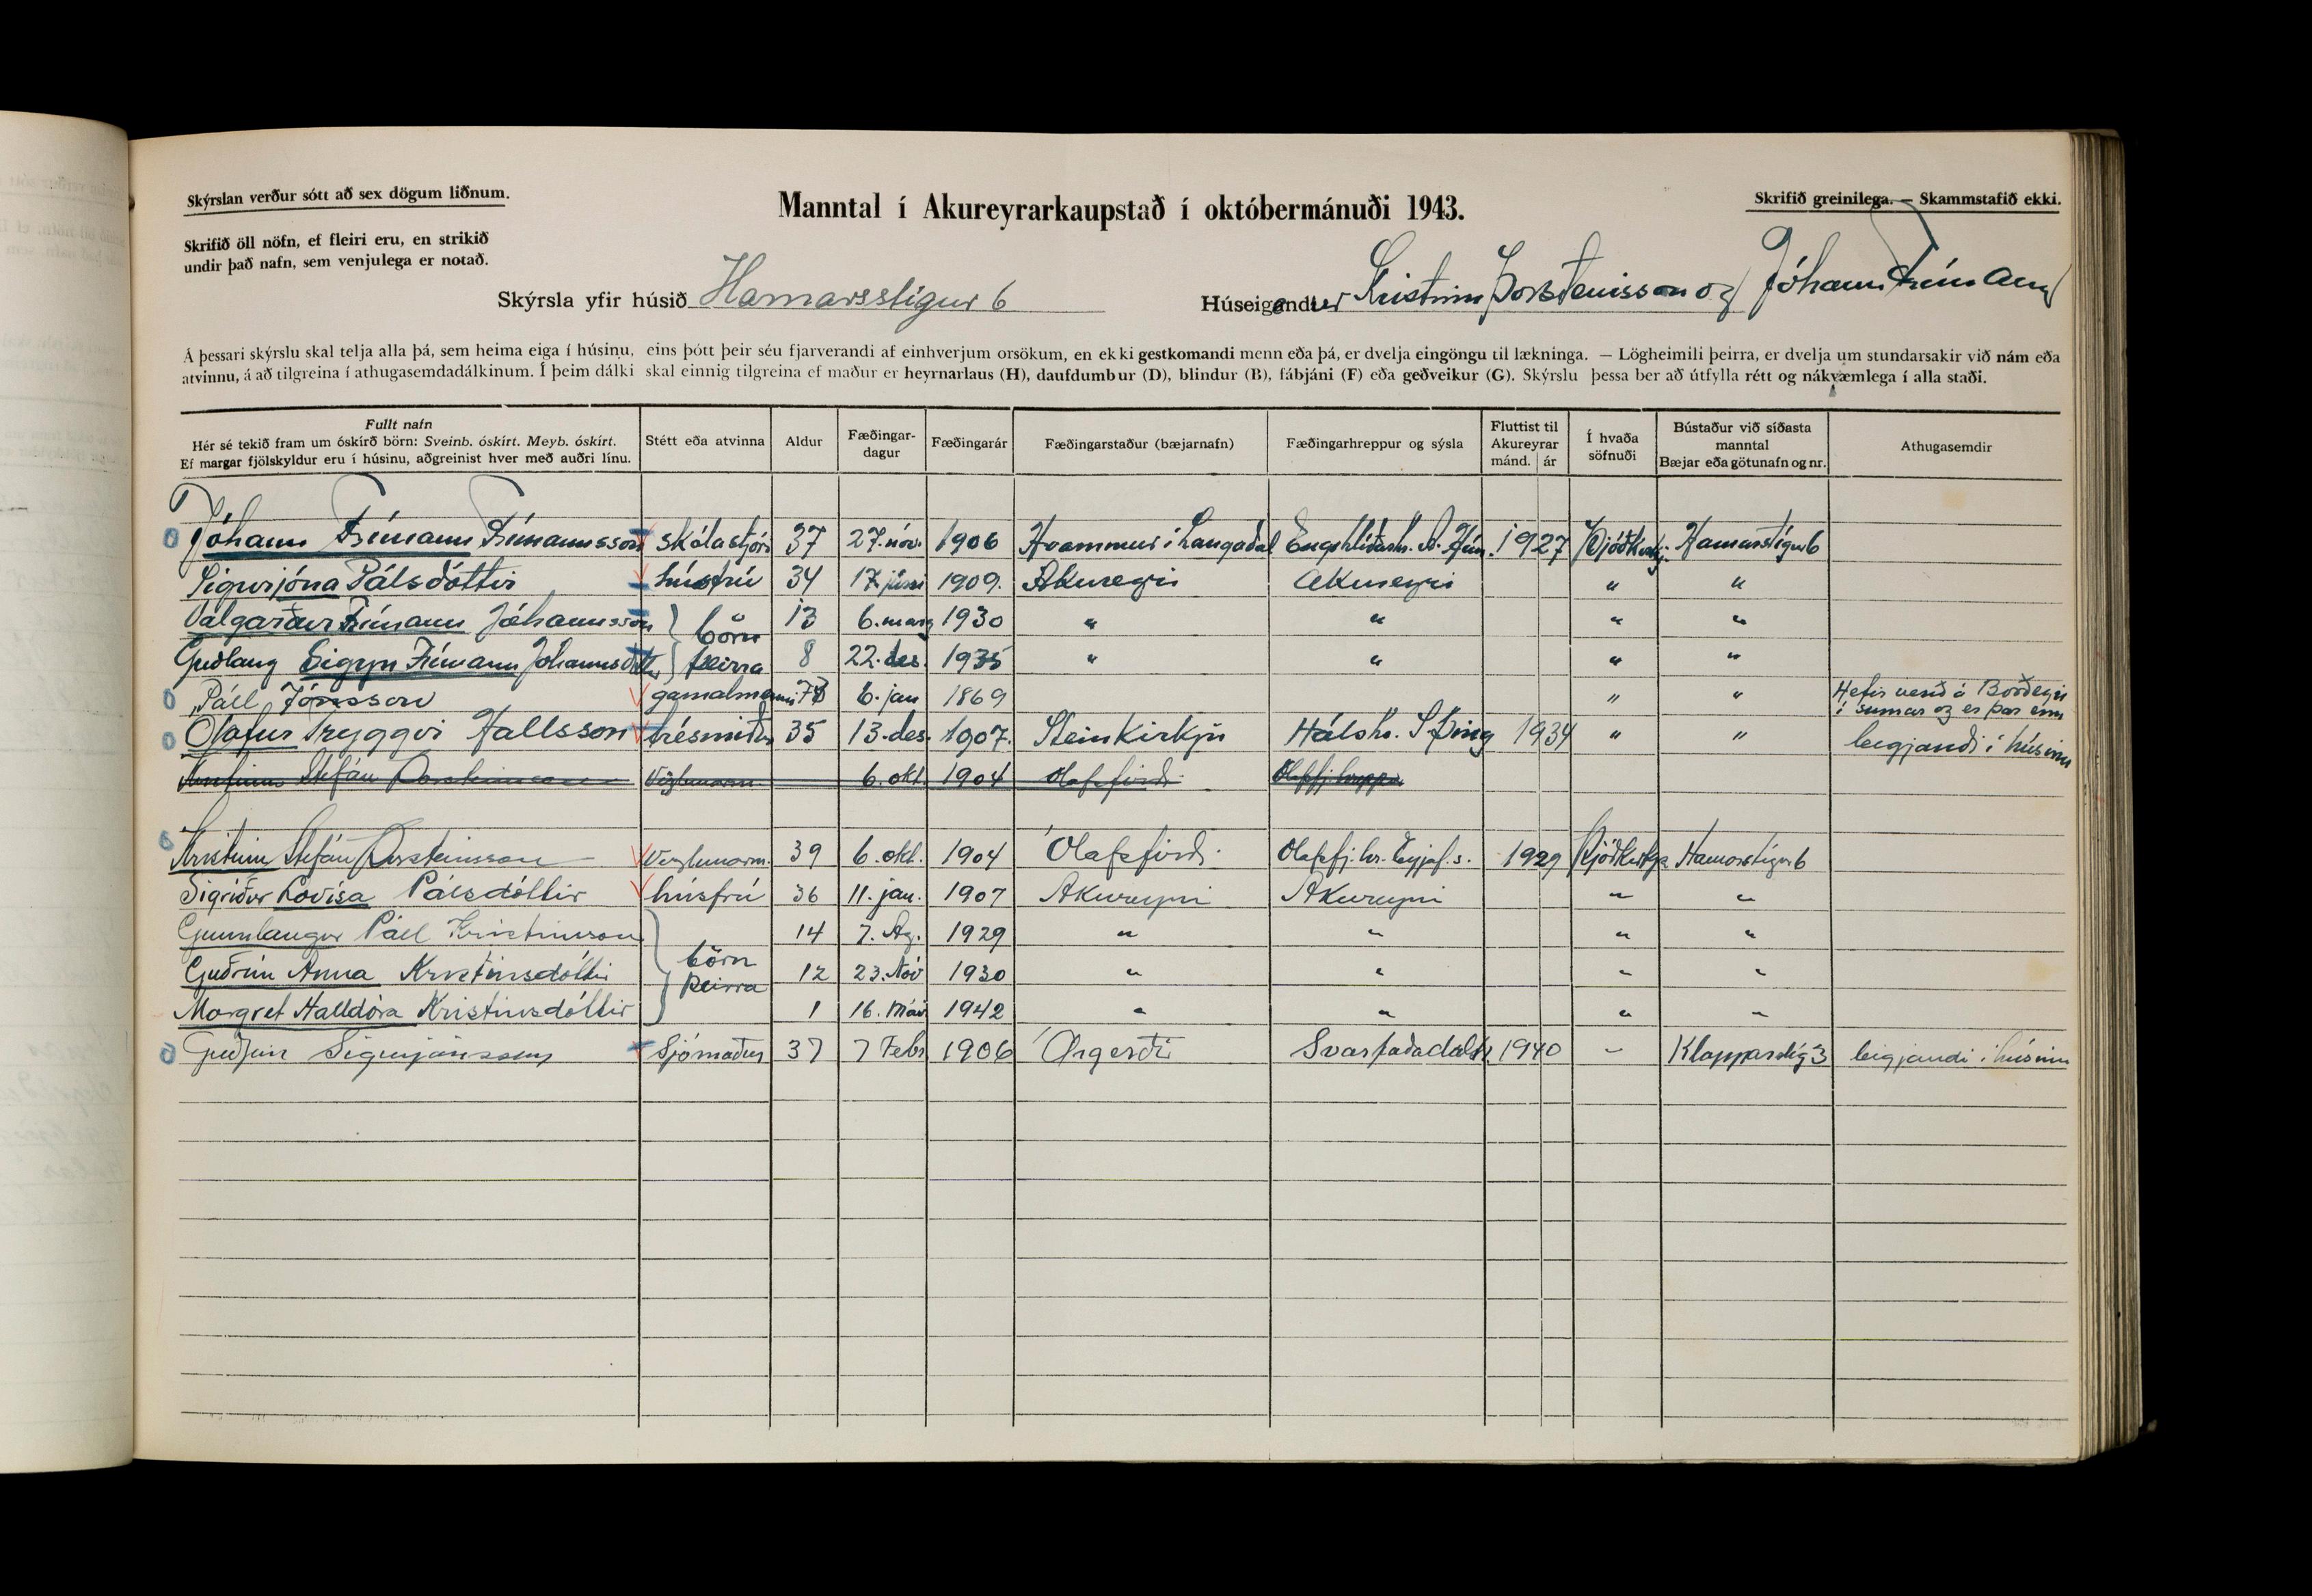 Skýrslan verður sótt að sex dögum liðnum.
Manntal í Akureyrarkaupstað í októbermánuði 1943.
Skrifið greinilega. — Skammstafið ekki.
Skrifið öll nöfn, ef fleiri eru, en strikið
undir það nafn, sem venjulega er notað.
Skýrsla yfir húsið Hamarsstígur 6
Húseigendur Kristinn Þorsteinsson og Jóhann Frímann
Á þessari skýrslu skal telja alla þá, sem heima eiga í húsinu, eins þótt þeir séu fjarverandi af einhverjum orsökum, en ekki gestkomandi menn eða þá, er dvelja eingöngu til lækninga. — Lögheimili þeirra, er dvelja um stundarsakir við nám eða
atvinnu, á að tilgreina í athugasemdadálkinum. Í þeim dálki skal einnig tilgreina ef maður er heyrnarlaus (H), daufdumbur (D), blindur (B), fábjáni (F) eða geðveikur (G). Skýrslu þessa ber að útfylla rétt og nákvæmlega í alla staði.
Fullt nafn
Hér sé tekið fram um óskírð börn: Sveinb. óskírt. Meyb. óskírt.
Ef margar fjölskyldur eru í húsinu, aðgreinist hver með auðri línu.
Stétt eða atvinna
Aldur
Fæðingar-
dagur
Fæðingarár
Fæðingarstaður (bæjarnafn)
Fæðingarhreppur og sýsla
Fluttist til
Akureyrar
mánd. ár
Í hvaða
söfnuði
Bústaður við síðasta
manntal
Bæjar eða götunafn og nr.
Athugasemdir
Jóhann Frímann Frímannsson skólastjóri 37 27. nóv. 1906 Hvammur í Langadal Engihlíðarh. A. Hún. 1927 Þjóðkirkj. Hamarstígur 6
Sigurjóna Pálsdóttir húsfrú 34 17. júni 1909. Akureyri Akureyri " "
Valgarður Frímann Jóhannsson börn 13 6. marz 1930 " " " "
Guðlaug Sigryn Frímann Jóhannsdóttir þeirra 8 22. des. 1935 " " " "
Páll Jónsson gamalmenni 73 6. jan 1869 " " Hefir verið á Borðeyri
í sumar og er þar enn
Ólafur Tryggvi Hallsson trésmiður 35 13. des. 1907. Steinkirkju Hálshr. S Þing 1934 " " leigjandi í húsinu
Kristinn Stefán Þorsteinsson Verzlunarm. 6. okt. 1904 Ólafsfirði Ólafsfj. hreppi
Kristinn Stefán Þorsteinsson Verzlunarm. 39 6. okt. 1904 Ólafsfirði. Ólafsfj. hr. Eyjaf. s. 1929 Þjóðkirkja Hamarstígur 6
Sigríður Lovísa Pálsdóttir húsfrú 36 11. jan. 1907 Akureyri Akureyri " "
Gunnlaugur Páll Kristinsson 14 7. Ág. 1929 " " " "
Guðrún Anna Kristinsdóttir börn 12 23. Nóv 1930 " " " "
þeirra
Margret Halldóra Kristinsdóttir 1 16. Maí 1942 " " " "
Guðjón Sigurjónsson Sjómaður 37 7 Febr 1906 Árgerði Svarfaðadalshr. 1940 " Klapparstíg 3 leigjandi í húsinu